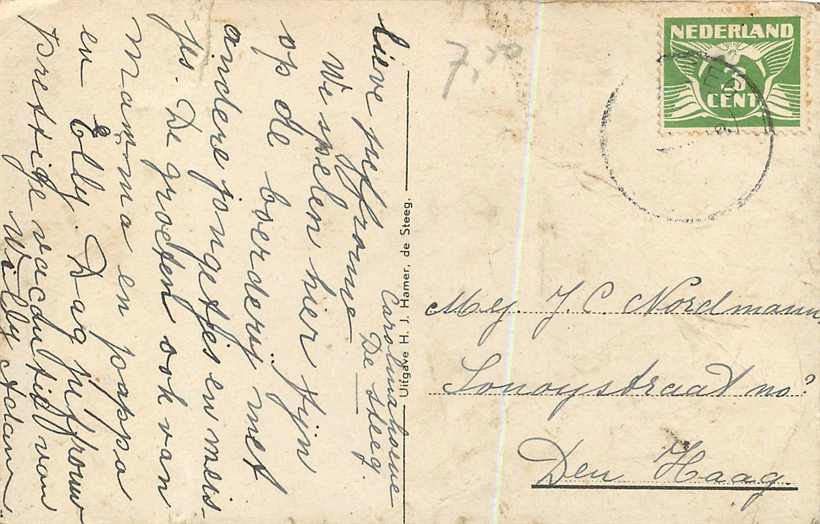 Carolinahoeve
De Steeg
lieve juffrouw
We spelen hier fijn
op de boerderij met
andere jongetjes en meis-
jes. De groeten ook van
mamma en pappa
en Elly. Dag juffrouw
prettige vacantie van
Willy Adam
Uitgave H. J. Hamer, de Steeg.
7,50
NEDERLAND
3
CENT
Mej. J. C. Nordmann,
Sonoystraat no.
Den Haag.